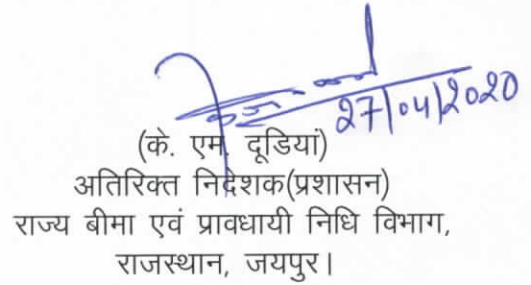 27/04/2020
(के. एम. दूडियां)
अतिरिक्त निदेशक(प्रशासन)
राज्य बीमा एवं प्रावधायी निधि विभाग,
राजस्थान, जयपुर।